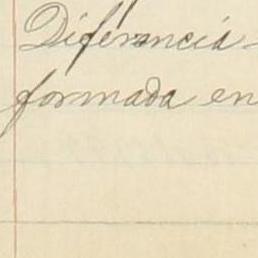 Diferencia
formada en